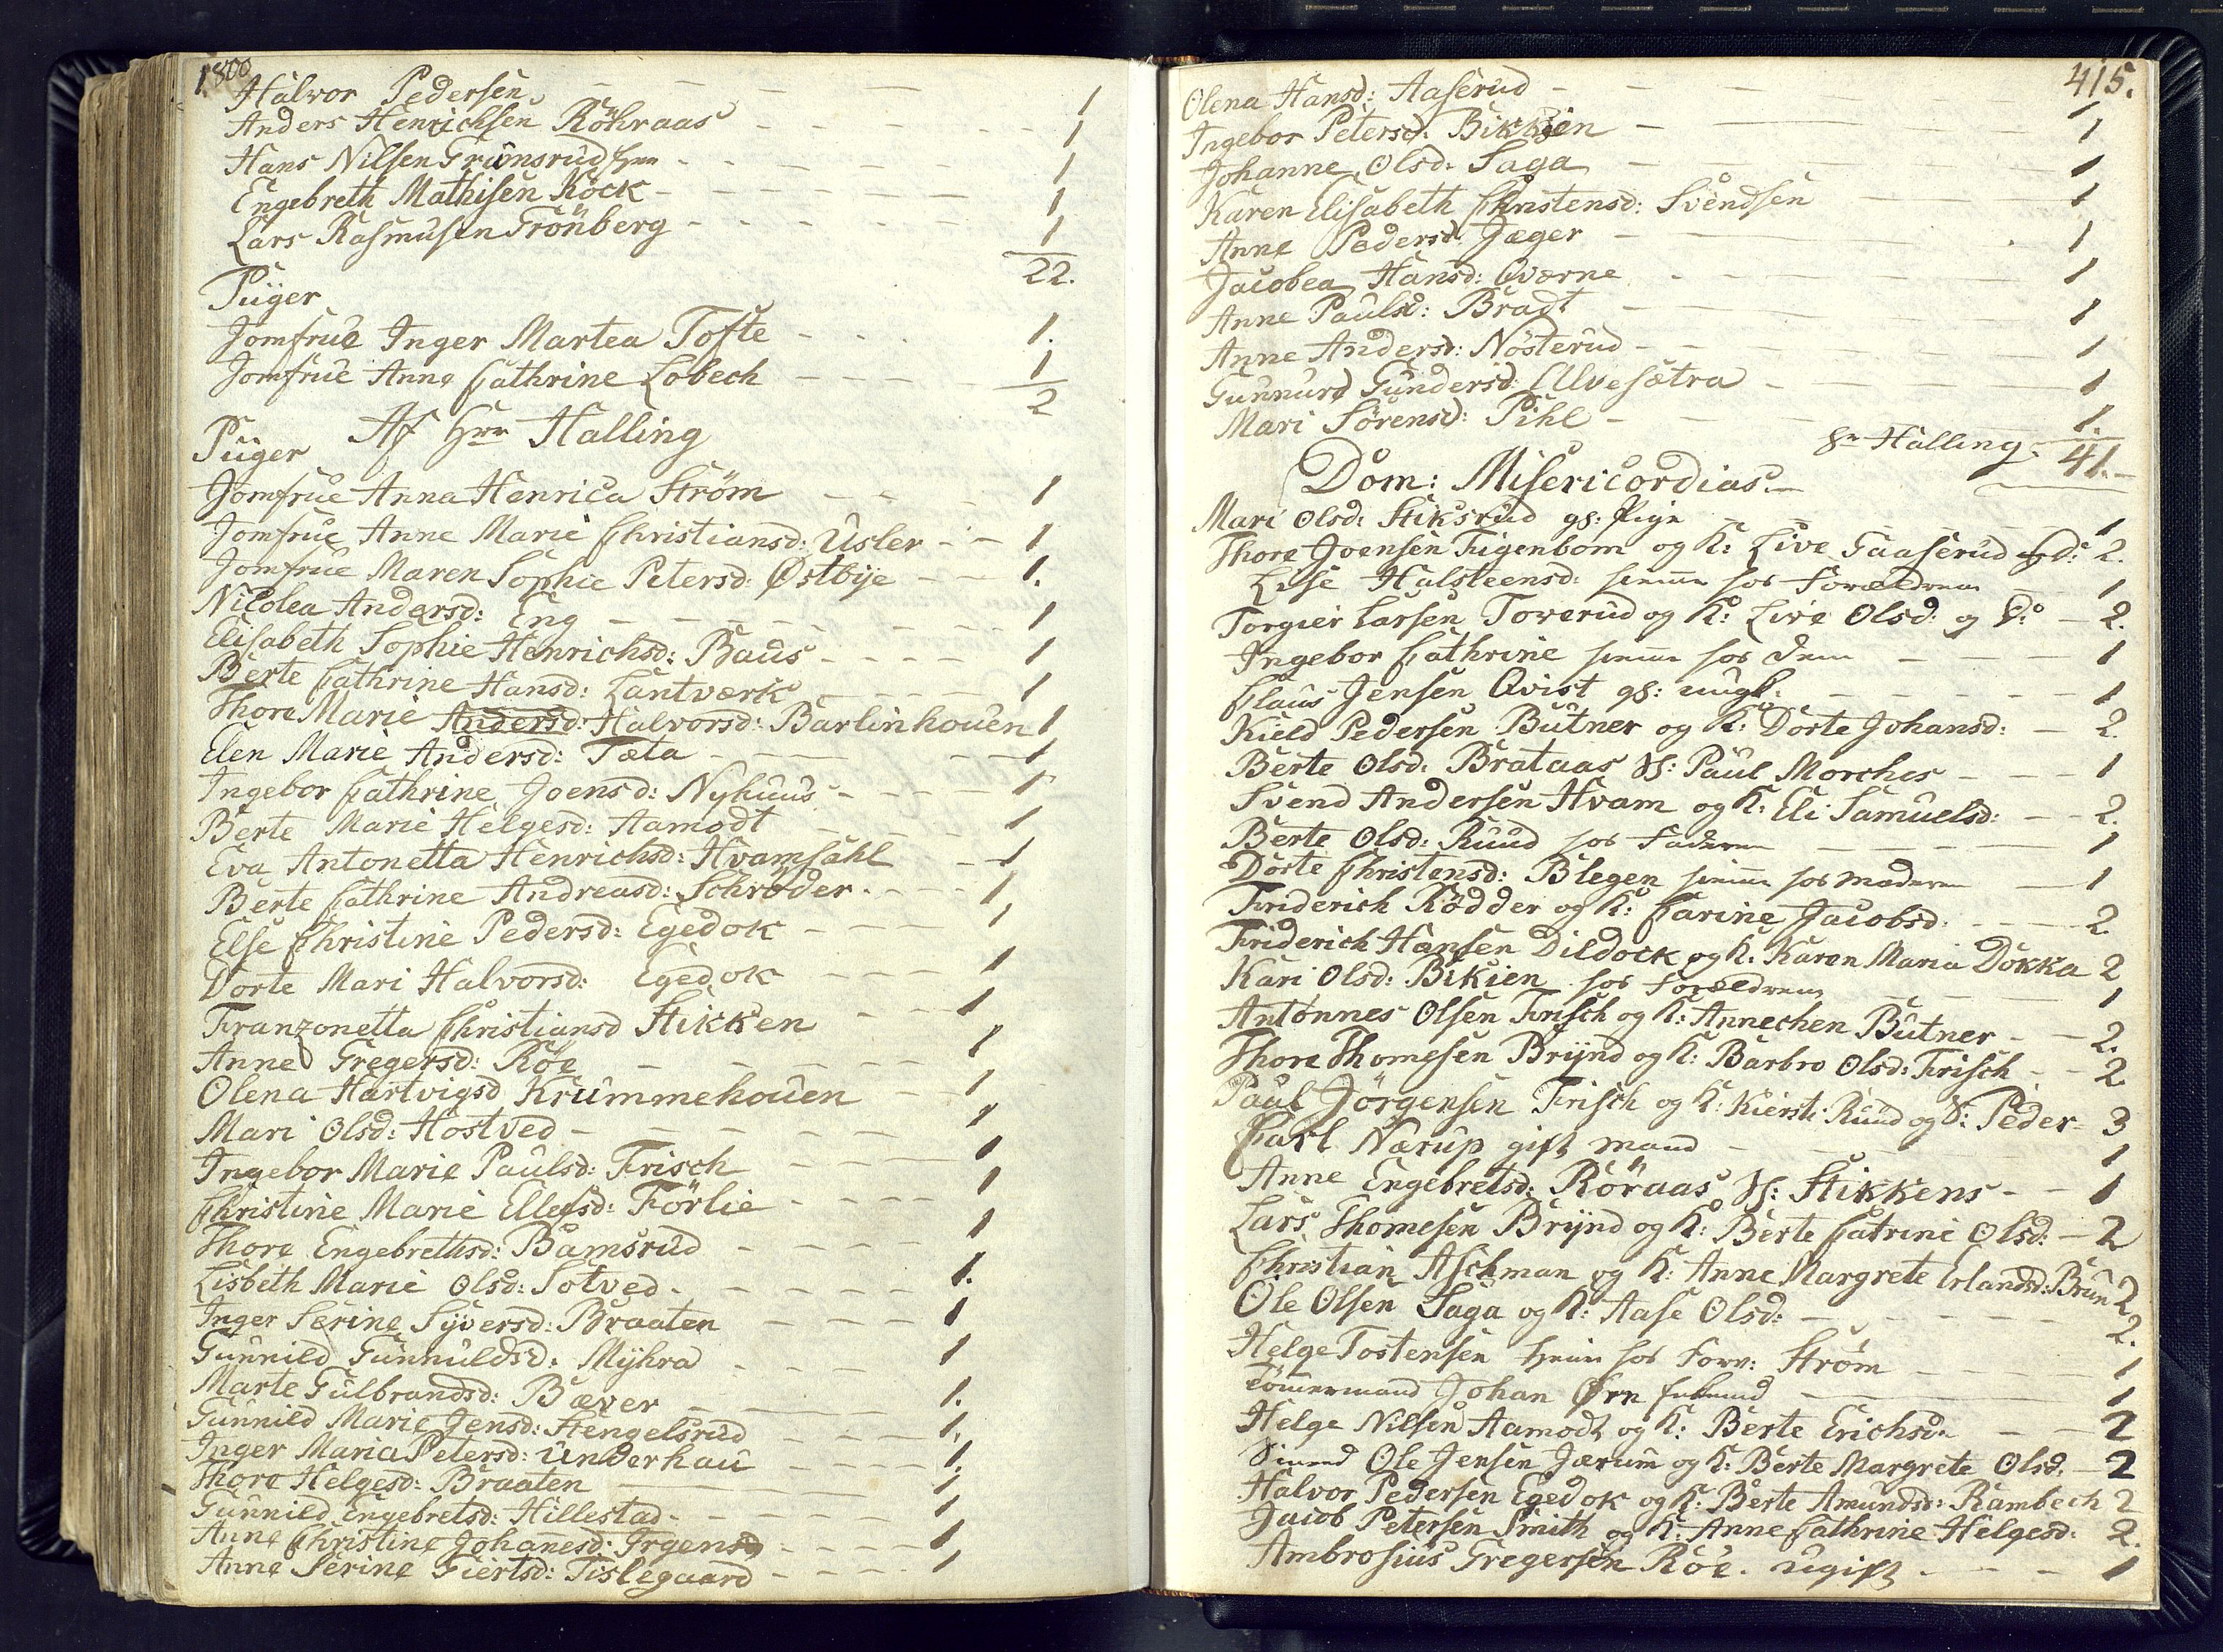 1800
Halvor Pedersen - - - 1
Anders Henrichsen Röhraas - - - 1
Hans Nilsen Grimsrud - - - 1
Engebreth Mathisen Köck - - - 1
Lars Rasmusen Grönberg - - - 1
22.
Piiger
Jomfrue Inger Martea Tofte - - - 1.
Jomfrue Anne Cathrine Lobech - - - 1
2
Af Hrr Halling
Piiger
Jomfrue Anna Henrica Strøm - - - 1
Jomfrue Anne Marie Christiansd: Usler - - 1
Jomfrue Maren Sophie Petersd: Østbije - - 1.
Nicolea Andersd: Eng - - - 1
Elisabeth Sophie Henrichsd: Baus - - - 1
Berte Cathrine Hansd: Lantværk - - - 1
Thore Marie Andersd: Halvorsd: Barlinhouen 1
Elen Marie Andersd: Tæta - - - 1
Ingebor Cathrine Joensd: Nyhuus - - - 1
Berte Marie Helgesd: Aamodt - - - 1
Eva Antonetta Henrichsd: Hvamsahl - - 1
Berte Cathrine Andreasd: Schrøder - - - 1
Else Christine Pedersd: Egedok - - - 1
Dorte Mari Halvorsd: Egedok - - - 1
Franzonetta Christiansd Stikken - - - 1
Anne Gregersd: Röe - - - 1
Olena Hartvigsd Krummehouen - - 1
Mari Olsd: Hostved - - - 1
Ingebor Marie Paulsd: Frisch - - - 1
Christine Marie Ellefsd: Förlie - - - 1
Thore Engebrethsd: Bamsrud - - - 1
Lisbeth Marie Olsd: Solved - - - 1.
Inger Serine Syversd: Braaten - - - 1
Gunnild Gunnuldsd: Myhra - - - 1
Marte Gulbrandsd: Bæver - - - 1.
Gunnild Marie Jensd: Stengelsrud - - - 1.
Inger Maria Petersd: Underhau - - - 1.
Thore Helgesd: Braaten - - - 1
Gunnild Engebretsd: Hillestad - - - 1
Anne Christine Johanesd: Irgens - - - 1
Anne Serine Giertsd: Tislegaard - - - 1
415.
Olena Hansd: Aaserud - - -
Ingebor Petersd: Bikkien - - - 1
Johanne Olsd: Saga - - - 1
Karen Elisabeth Christensd: Svendsen - - 1
Anne Pedersd Jæger - - - 1
Jacobea Hansd: Qværne - - - 1
Anne Paulsd: Bradt - - - 1
Anne Andersd: Nösterud - - - 1
Gunnurd Gundersd: Ulvesætra - - - 1
Mari Sørensd: Pihl - - - 1.
Hr Halling. 41.
Dom: Misericordias.
Mari Olsd: Stiksrud gl: Pige - - - 1
Thore Joensen Tigenbom og K: Live Gaaserud 2.
Lise Halsteensd: hiemme hos Forældrene 1
Torgier Larsen Toverud og K: Live Olsd: - 2.
Ingebor Cathrine hiemme hos dem - - 1
Claus Jensen Qvist gl: ungk: - - - 1
Kield Pedersen Butner og K: Dorte Johansd: - 2.
Berte Olsd: Brataas Paul Morches - - - 1
Svend Andersen Hvam og K: Eli Samuelsd: - - 2.
Berte Olsd: Ruud hos Faderen - - - 1
Dorte Christensd: Blegen hiemme hos Moderen - 1
Friderich Rödder og K: Carine Jacobsd. - - - 2
Friderich Hansen Dildock og K: Karen Maria Dokka 2
Kari Olsd: Bikien hos Forældrene - - - 1
Antonnes Olsen Frisch og K: Annechen Butner - - 2.
Thore Thomesen Brijnd og K: Barbro Olsd: Frisch - - 2
Paul Jörgensen Frisch og K: Kiersti Ruud og S: Peder - 3
Carl Nærup gift Mand - - - 1
Anne Engebretsd: Röraas Stikkens - - 1
Lars Thomesen Brijnd og K: Berte Catrine Olsd: - 2
Christian Aschman og K: Anne Margrete Erlandsd: Brun 2
Ole Olsen Saga og K: Aase Olsd: - - - 2.
Helge Tostensen hos Forv: Strøm - - - 1
Tömmermand Johan Ørn - - - 1
Helge Nilsen Aamodt og K: Berte Erichsd: - - 2
Ole Jensen Jærum og K: Berte Margrete Olsd. - 2
Halvor Pedersen Egedok og K: Berte Amundsd: Rambech 2
Jacob Petersen Smith og K: Anne Cathrine Helgesd: 2.
Ambrosius Gregersen Röe. ugift - - - 1